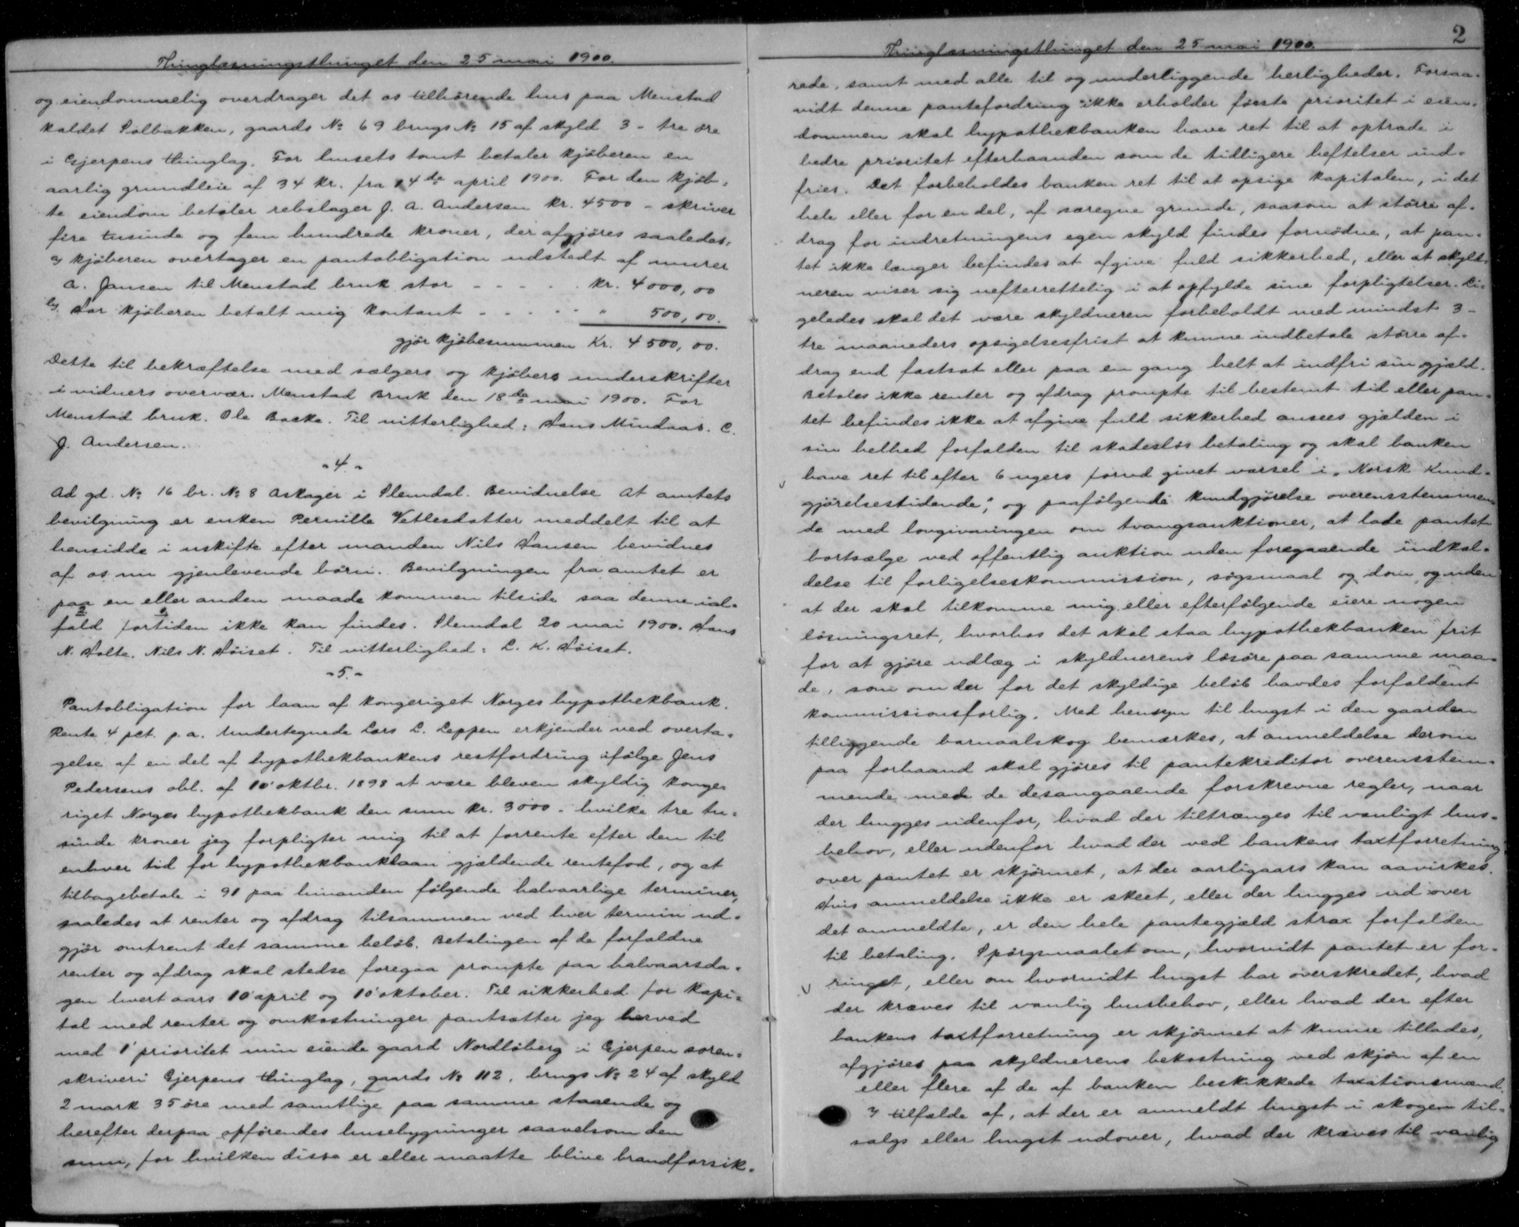 Thinglæsningsthinget den 25 mai 1900.
og eiendommelig overdrager det os tilhørende hus paa Menstad
kaldet Solbakken, gaards № 69 brugs № 15 af skyld 3 - tre øre
i Gjerpens thinglag. For husets tomt betaler kjøberen en
aarlig grundleie af 34 kr. fra 14de april 1900. For den kjøb-
te eiendom betaler rebslager J. A. Andersen kr. 4500 - skriver
fire tusinde og fem hundrede kroner, der afgjøres saaledes:
a) kjøberen overtager en pantobligation udstedt af murer
A. Jansen til Menstad bruk stor - - - - - kr. 4000,00
b) Har kjøberen betalt mig kontant - - - - - " 500,00.
gjør kjøbesummen Kr. 4500,00.
Dette til bekræftelse med sælgers og kjøbers underskrifter
i vidners overvær. Menstad Bruk den 18de mai 1900. For
Menstad bruk. Ole Baske. Til vitterlighed: Hans Mindaas. C.
J. Andersen.
" 4 "
Ad gd. № 16 br. № 8 Askager i Slemdal. Bevidnelse at amtets
bevilgning er enken Pernille Vetlesdatter meddelt til at
hensidde i uskifte efter manden Nils Hansen bevidnes
af os nu gjenlevende børn. Bevilgningen fra amtet er
paa en eller anden maade kommen tilside saa denne ial-
fald fortiden ikke kan findes. Slemdal 20 mai 1900. Hans
N. Holte. Nils N. Høiset. Til vitterlighed: L. K. Høiset.
" 5 "
Pantobligation for laan af kongeriget Norges hypothekbank.
Rente 4 pct. p.a. Undertegnede Lars L. Leppen erkjender ved overta-
gelse af en del af hypothekbankens restfordring ifølge Jens
Pedersens obl. af 10' oktbr. 1898 at være bleven skyldig konge-
riget Norges hypothekbank den sum kr. 3000 - hvilke tre tu-
sinde kroner jeg forpligter mig til at forrente efter den til
enhver tid for hypothekbanklaan gjældende rentefod, og at
tilbagebetale i 91 paa hinanden følgende halvaarlige terminer,
saaledes at renter og afdrag tilsammen ved hver termin ud-
gjør omtrent det samme beløb. Betalingen af de forfaldne
renter og afdrag skal stedse foregaa prompte paa halvaarsda-
gen hvert aars 10' april og 10' oktober. Til sikkerhed for kapi-
tal med renter og omkostninger pantsætter jeg herved
med 1' prioritet min eiende gaard Nordløberg i Gjerpen soren-
skriveri Gjerpens thinglag, gaards № 112, brugs № 24 af skyld
2 mark 35 øre med samtlige paa samme staaende og
herefter derpaa opførendes husebygninger saavelsom den
sum, for hvilken disse er eller maatte blive brandforsik-
Thinglæsningsthinget den 25 mai 1900.
2
rede, samt med alle til og underliggende herligheder. Forsaa-
vidt denne pantefordring ikke erholder første prioritet i eien-
dommen skal hypothekbanken have ret til at optræde i
bedre prioritet efterhaanden som de tidligere heftelser ind-
fries. Det forbeholdes banken ret til at opsige kapitalen, i det
hele eller for en del, af særegne grunde, saasom at større af-
drag for indretningens egen skyld findes fornødne, at pan-
tet ikke længer befindes at afgive fuld sikkerhed, eller at skyld-
neren viser sig uefterrettelig i at opfylde sine forpligtelser. Li-
gelades skal det være skyldneren forbeholdt med mindst 3 -
tre maaneders opsigelsesfrist at kunne indbetale større af-
drag end fastsat eller paa en gang helt at indfri sin gjæld.
Betales ikke renter og afdrag prompte til bestemt tid eller pan-
tet befindes ikke at afgive fuld sikkerhed ansees gjælden i
sin helhed forfalden til skadesløs betaling og skal banken
have ret til efter 6 ugers forud givet varsel i "Norsk Kund-
gjørelsestidende", og paafølgende kundgjørelse overensstemmen-
de med lovgivningen om tvangsauktioner, at lade pantet
bortsælge ved offentlig auktion uden foregaaende indkal-
delse til forligelseskommission, søgsmaal og dom, og uden
at der skal tilkomme mig eller efterfølgende eiere nogen
løsningsret, hvorhos det skal staa hypothekbanken frit
for at gjøre udlæg i skyldnerens løsøre paa samme maa-
de, som om der for det skyldige beløb havdes forfaldent
kommissionsforlig. Med hensyn til hugst i den gaarden
tilliggende barnaalskog bemærkes, at anmeldelse derom
paa forhaand skal gjøres til pantekreditor overensstem-
mende med de desangaaende forskrevne regler, naar
der hugges udenfor, hvad der tiltrænges til vanligt hus-
behov, eller udenfor hvad der ved bankens taxtforretning
over pantet er skjønnet, at der aarligaars kan aavirkes.
Hvis anmeldelse ikke er skeet, eller der hugges ud over
det anmeldte, er den hele pantegjæld strax forfalden
til betaling. Spørgsmaalet om, hvorvidt pantet er for-
ringet, eller om hvorvidt hugst har overskredet, hvad
der kræves til vanlig husbehov, eller hvad der efter
bankens taxtforretning er skjønnet at kunne tillades,
afgjøres paa skyldnerens bekostning ved skjøn af en
eller flere af de af banken beskikkede taxationsmænd.
I tilfælde af, at der er anmeldt hugst i skogen til-
salgs eller hugst udover, hvad der kræves til vanlig